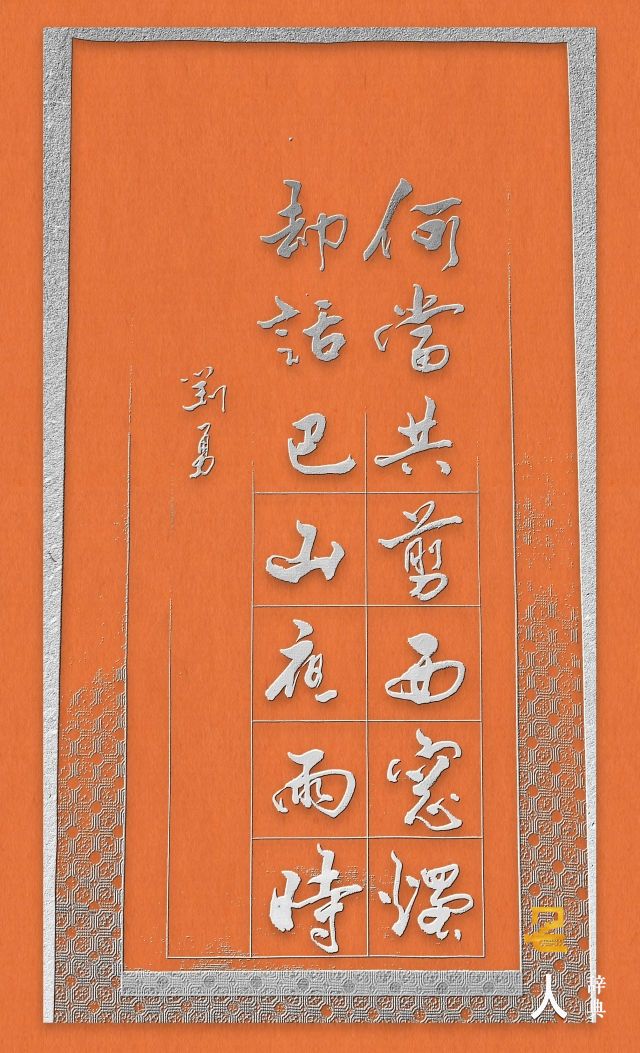 何當共剪西窓燭
却話巴山夜雨時
劉勇
名人
辞典